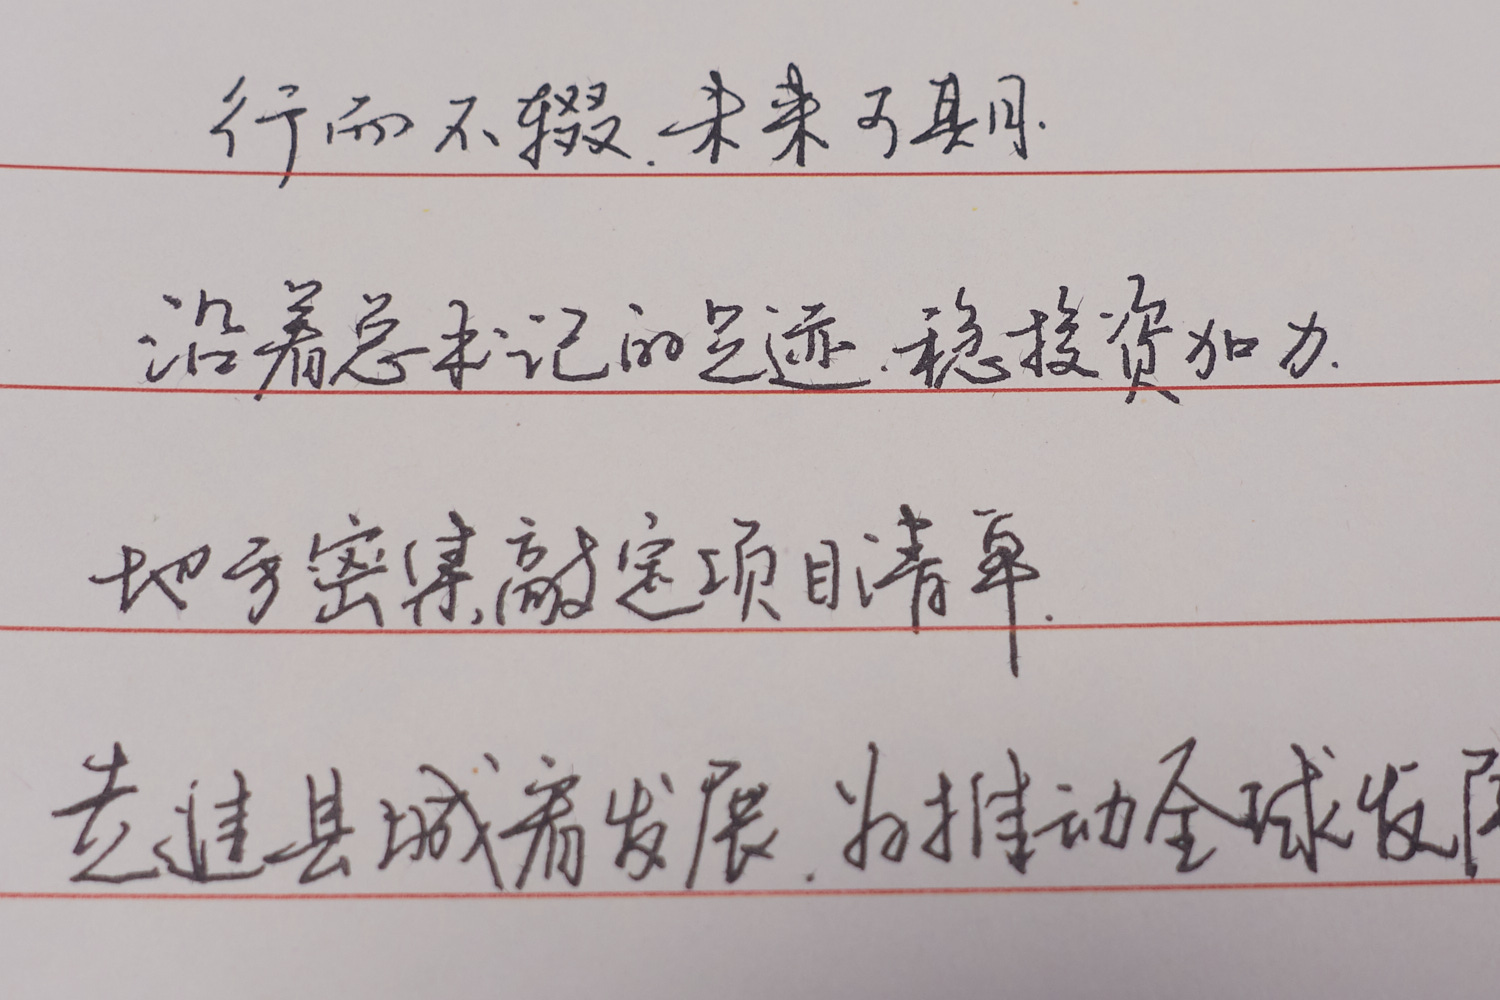 行而不辍.未来可期.
沿着总书记的足迹.稳投资加力.
地方密集敲定项目清单.
走进县城看发展.为推动全球发